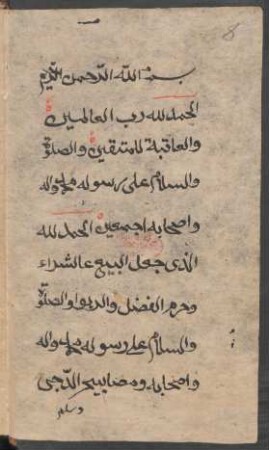 8
بسم الله الرحمن الرحيم
الحمد لله رب العالمين
والعاقبة للمتقين والصلوة
والسلام على رسوله محمد واله
واصحابه اجمعين الحمد لله
الذى جعل البيع عالشراء
وحرم الفضل والربوا والصلوة
والسلام على رسوله محمد واله
واصحابه ومصابيح الدجى